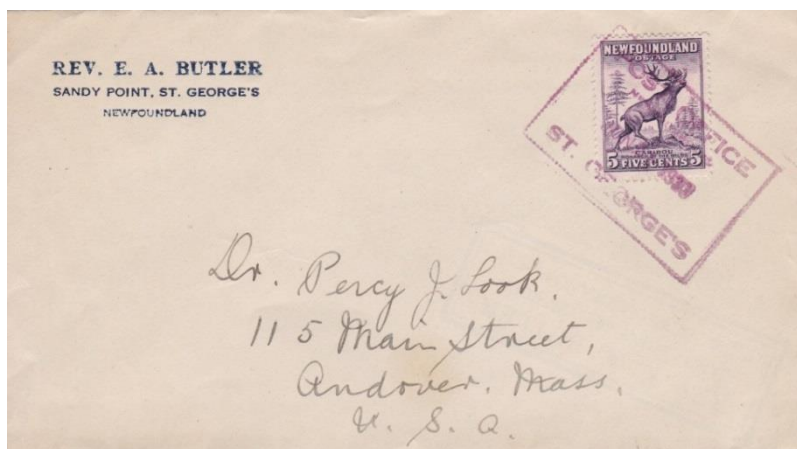 REV. E. A. BUTLER
SANDY POINT, ST. GEORGE'S
NEWFOUNDLAND
NEWFOUNDLAND
POSTAGE
CARIBOU
5 FIVE CENTS 5
POST OFFICE
ST. GEORGE'S
Dr. Percy J. Look.
115 Main Street,
Andover. Mass.
U. S. A.